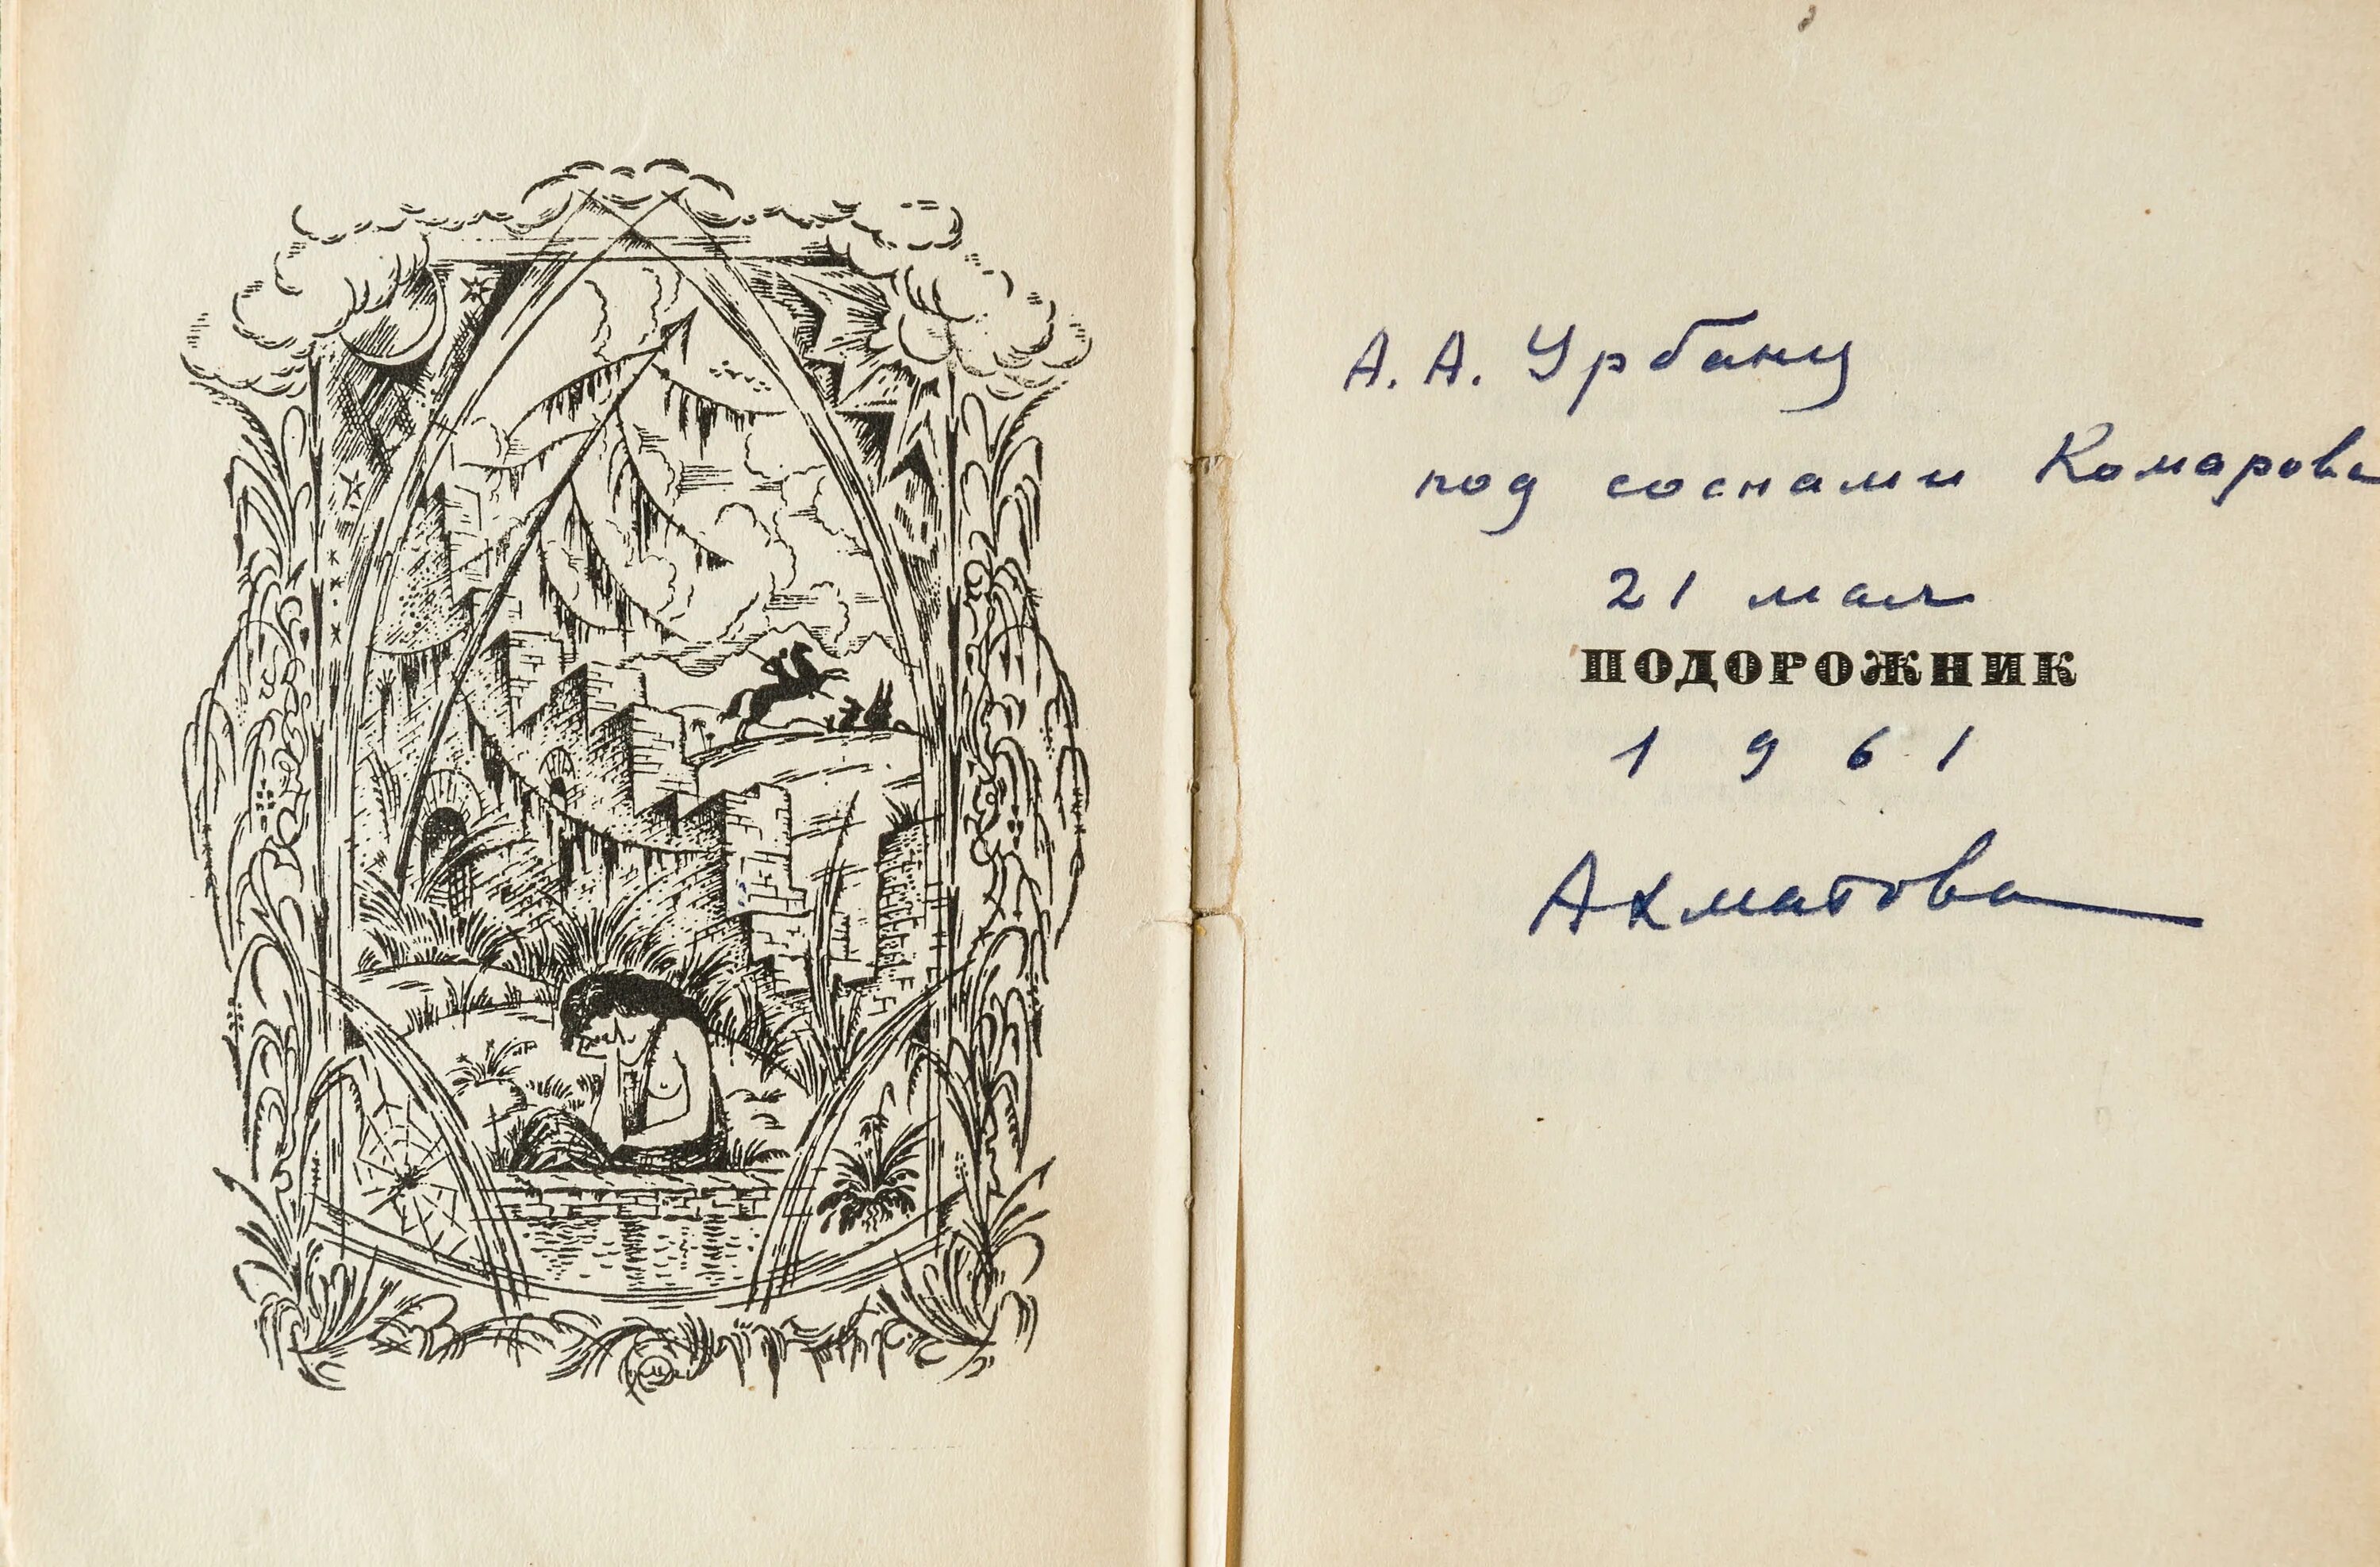 А. А. Урбану
под соснами Комарова
21 мая
ПОДОРОЖНИК
1961
Ахматова